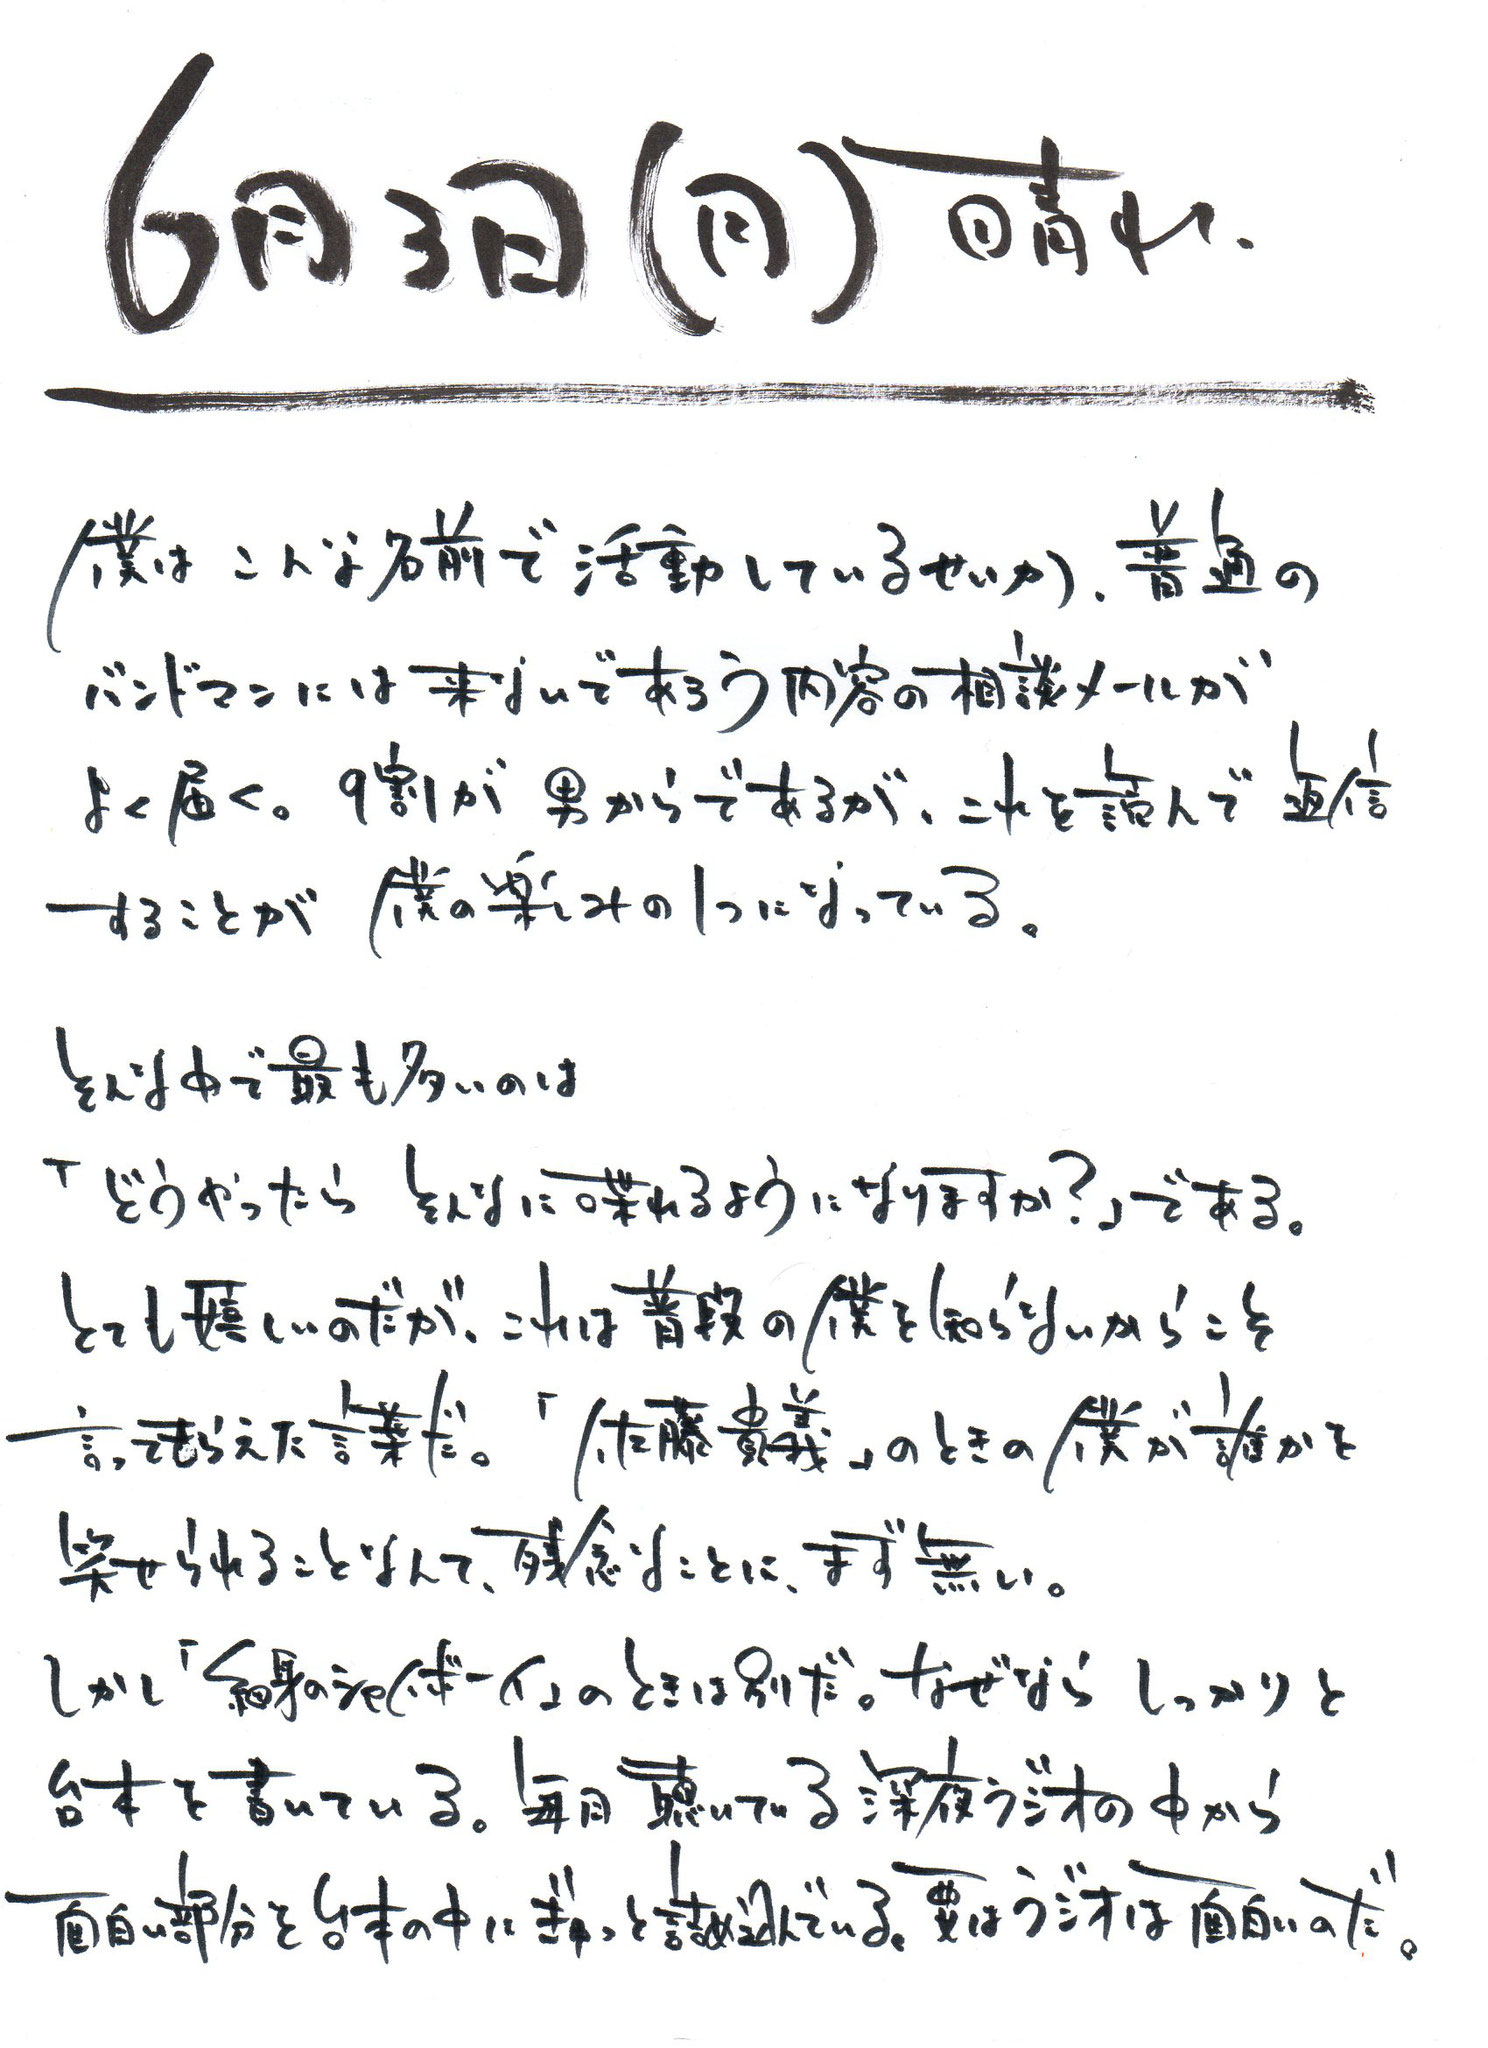 6月3日(月) 晴れ.
僕は こんな名前で活動しているせいか、普通の
バンドマンには来ないであろう内容の相談メールが
よく届く。9割が男からであるが、これを読んで返信
することが 僕の楽しみの1つになっている。
そんな中で最も多いのは
「どうやったら そんなに喋れるようになりますか?」である。
とても嬉しいのだが、これは普段の僕を知らないからこそ
言ってもらえた言葉だ。「佐藤貴義」のときの僕が誰かを
笑せられることなんて、残念なことに、まず無い。
しかし「細身のシャイボーイ」のときは別だ。なぜなら しっかりと
台本を書いている。毎月聴いている深夜ラジオの中から
面白い部分を台本の中にぎゅっと詰め込んでいる。要はラジオは面白いのだ。